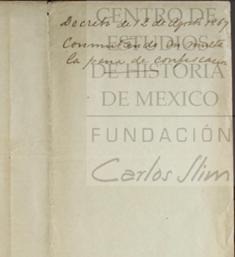 CENTRO DE
Decreto de 12 de Agosto 1867
ESTUDIOS
Conmutando en multa
la pena de confiscacion
DE HISTORIA
DE MEXICO
FUNDACIÓN
Carlos Slim